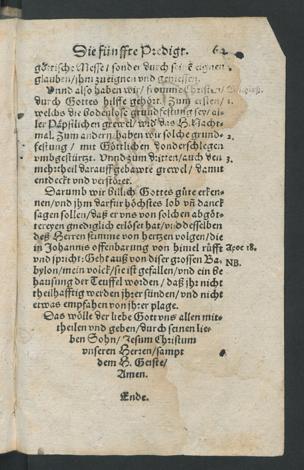 Die fünffte Predigt. 64
göttische Messe/ sonder durch seinē eignen
glauben/ ihm zueignen vnd geniessen.
Vnnd also haben wir/ fromme Christen/
durch Gottes hilffe gehört. Zum ersten/ 1.
welchs die Bodenlose grundfestung sey/ al-
ler Päpstlichen grewel/ wid das H. Nacht-
mal. Zum andern/ haben wir solche grund- 2.
festung/ mit Göttlichen donderschlegen
vmbgestürtzt. Vnnd zum dritten/ auch den 3.
mehrtheil darauff gebawte grewel/ damit
entdeckt vnd verstöret.
Darumb wir billich Gottes güte erken-
nen/ vnd jhm darfür höchstes lob vn̄ danck
sagen sollen/ daß er vns von solchen abgöt-
tereyen gnediglich erlöset hat/ vnd desselben
deß Herren stimme von hertzen volgen/ die
in Johannis offenbarung von himel rüfft Apoc 18.
vnd spricht: Geht auß von diser grossen Ba-
bylon/ mein volck/ sie ist gefallen/ vnd ein Be NB.
hausung der Teuffel worden/ daß ihr nicht
theilhafftig werden jhrer sünden/ vnd nicht
etwas empfahen von jhrer plage.
Das wölle der liebe Gott vns allen mit-
theilen vnd geben/ durch seinen lie-
ben Sohn/ Jesum Christum
vnseren Herren/ sampt
dem H. Geiste/
Amen.
Ende.